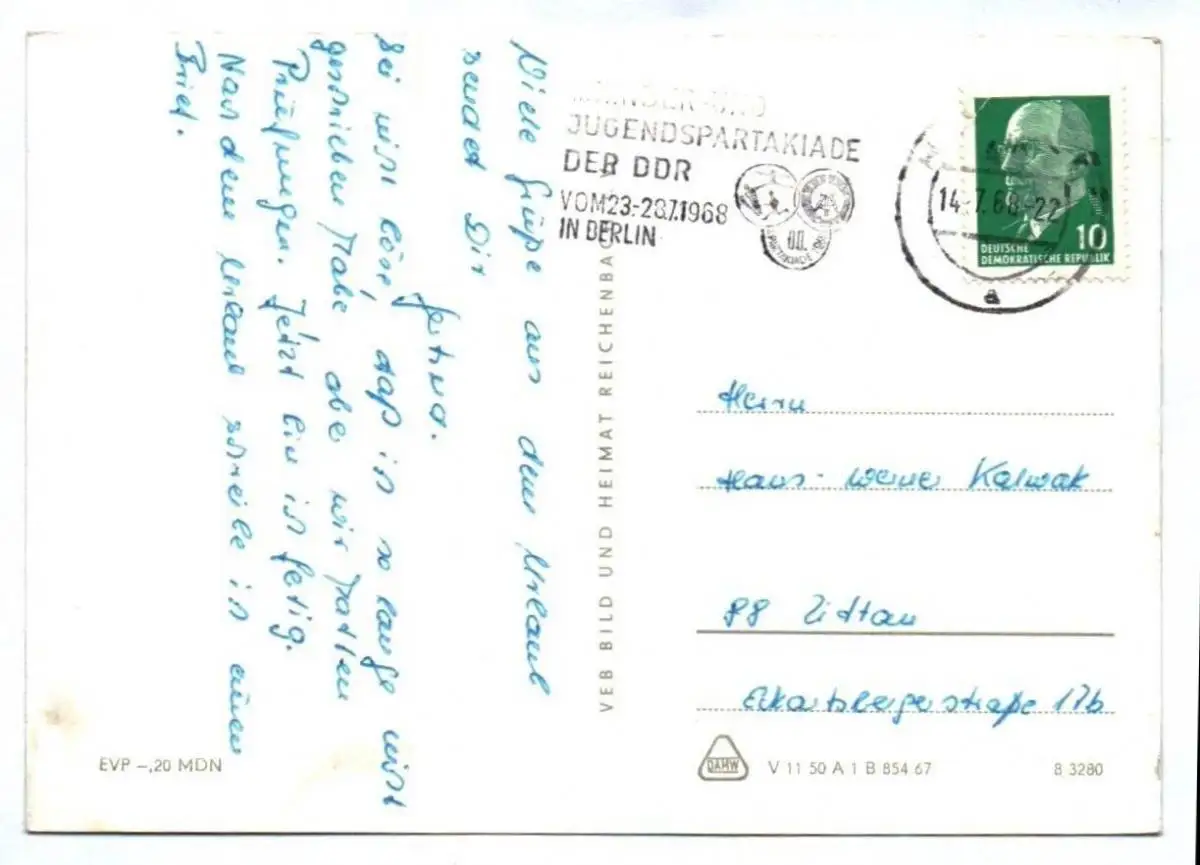 Viele Grüße aus dem Urlaub
sendet Dir
Sei nicht böse, daß ich so lange nicht
geschrieben habe, aber wir hatten
Prüfungen. Jetzt bin ich fertig.
Nach dem Urlaub schreibe ich einen
Brief.
KINDER-UND
JUGENDSPARTAKIADE
DER DDR
VOM 23.-28.7.1968
IN BERLIN
14.-7.68.-22
a
10
DEUTSCHE
DEMOKRATISCHE REPUBLIK
VEB BILD UND HEIMAT REICHENBACH
Herrn
Hans-Werner Kalwak
88 Zittau
Eckartsbergerstraße 17b
EVP –,20 MDN
DAMW
V 11 50 A 1 B 854 67
8 3280